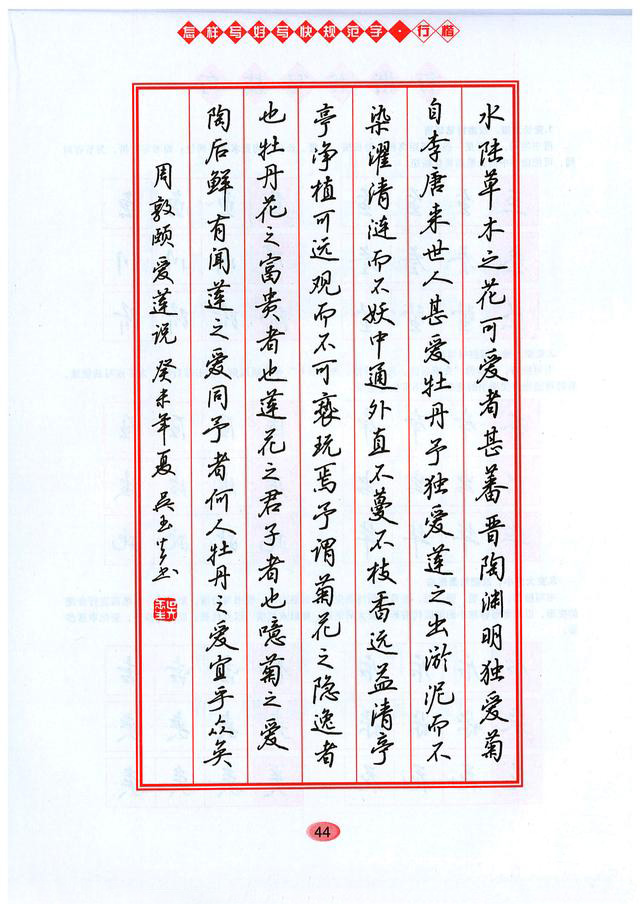 怎样写好写快规范字·行楷
水陆草木之花可爱者甚蕃晋陶渊明独爱菊
自李唐来世人甚爱牡丹予独爱莲之出淤泥而不
染濯清涟而不妖中通外直不蔓不枝香远益清亭
亭净植可远观而不可亵玩焉予谓菊花之隐逸者
也牡丹花之富贵者也莲花之君子者也噫菊之爱
陶后鲜有闻莲之爱同予者何人牡丹之爱宜乎众矣
周敦颐爱莲说 癸未年夏 吴玉生书
44